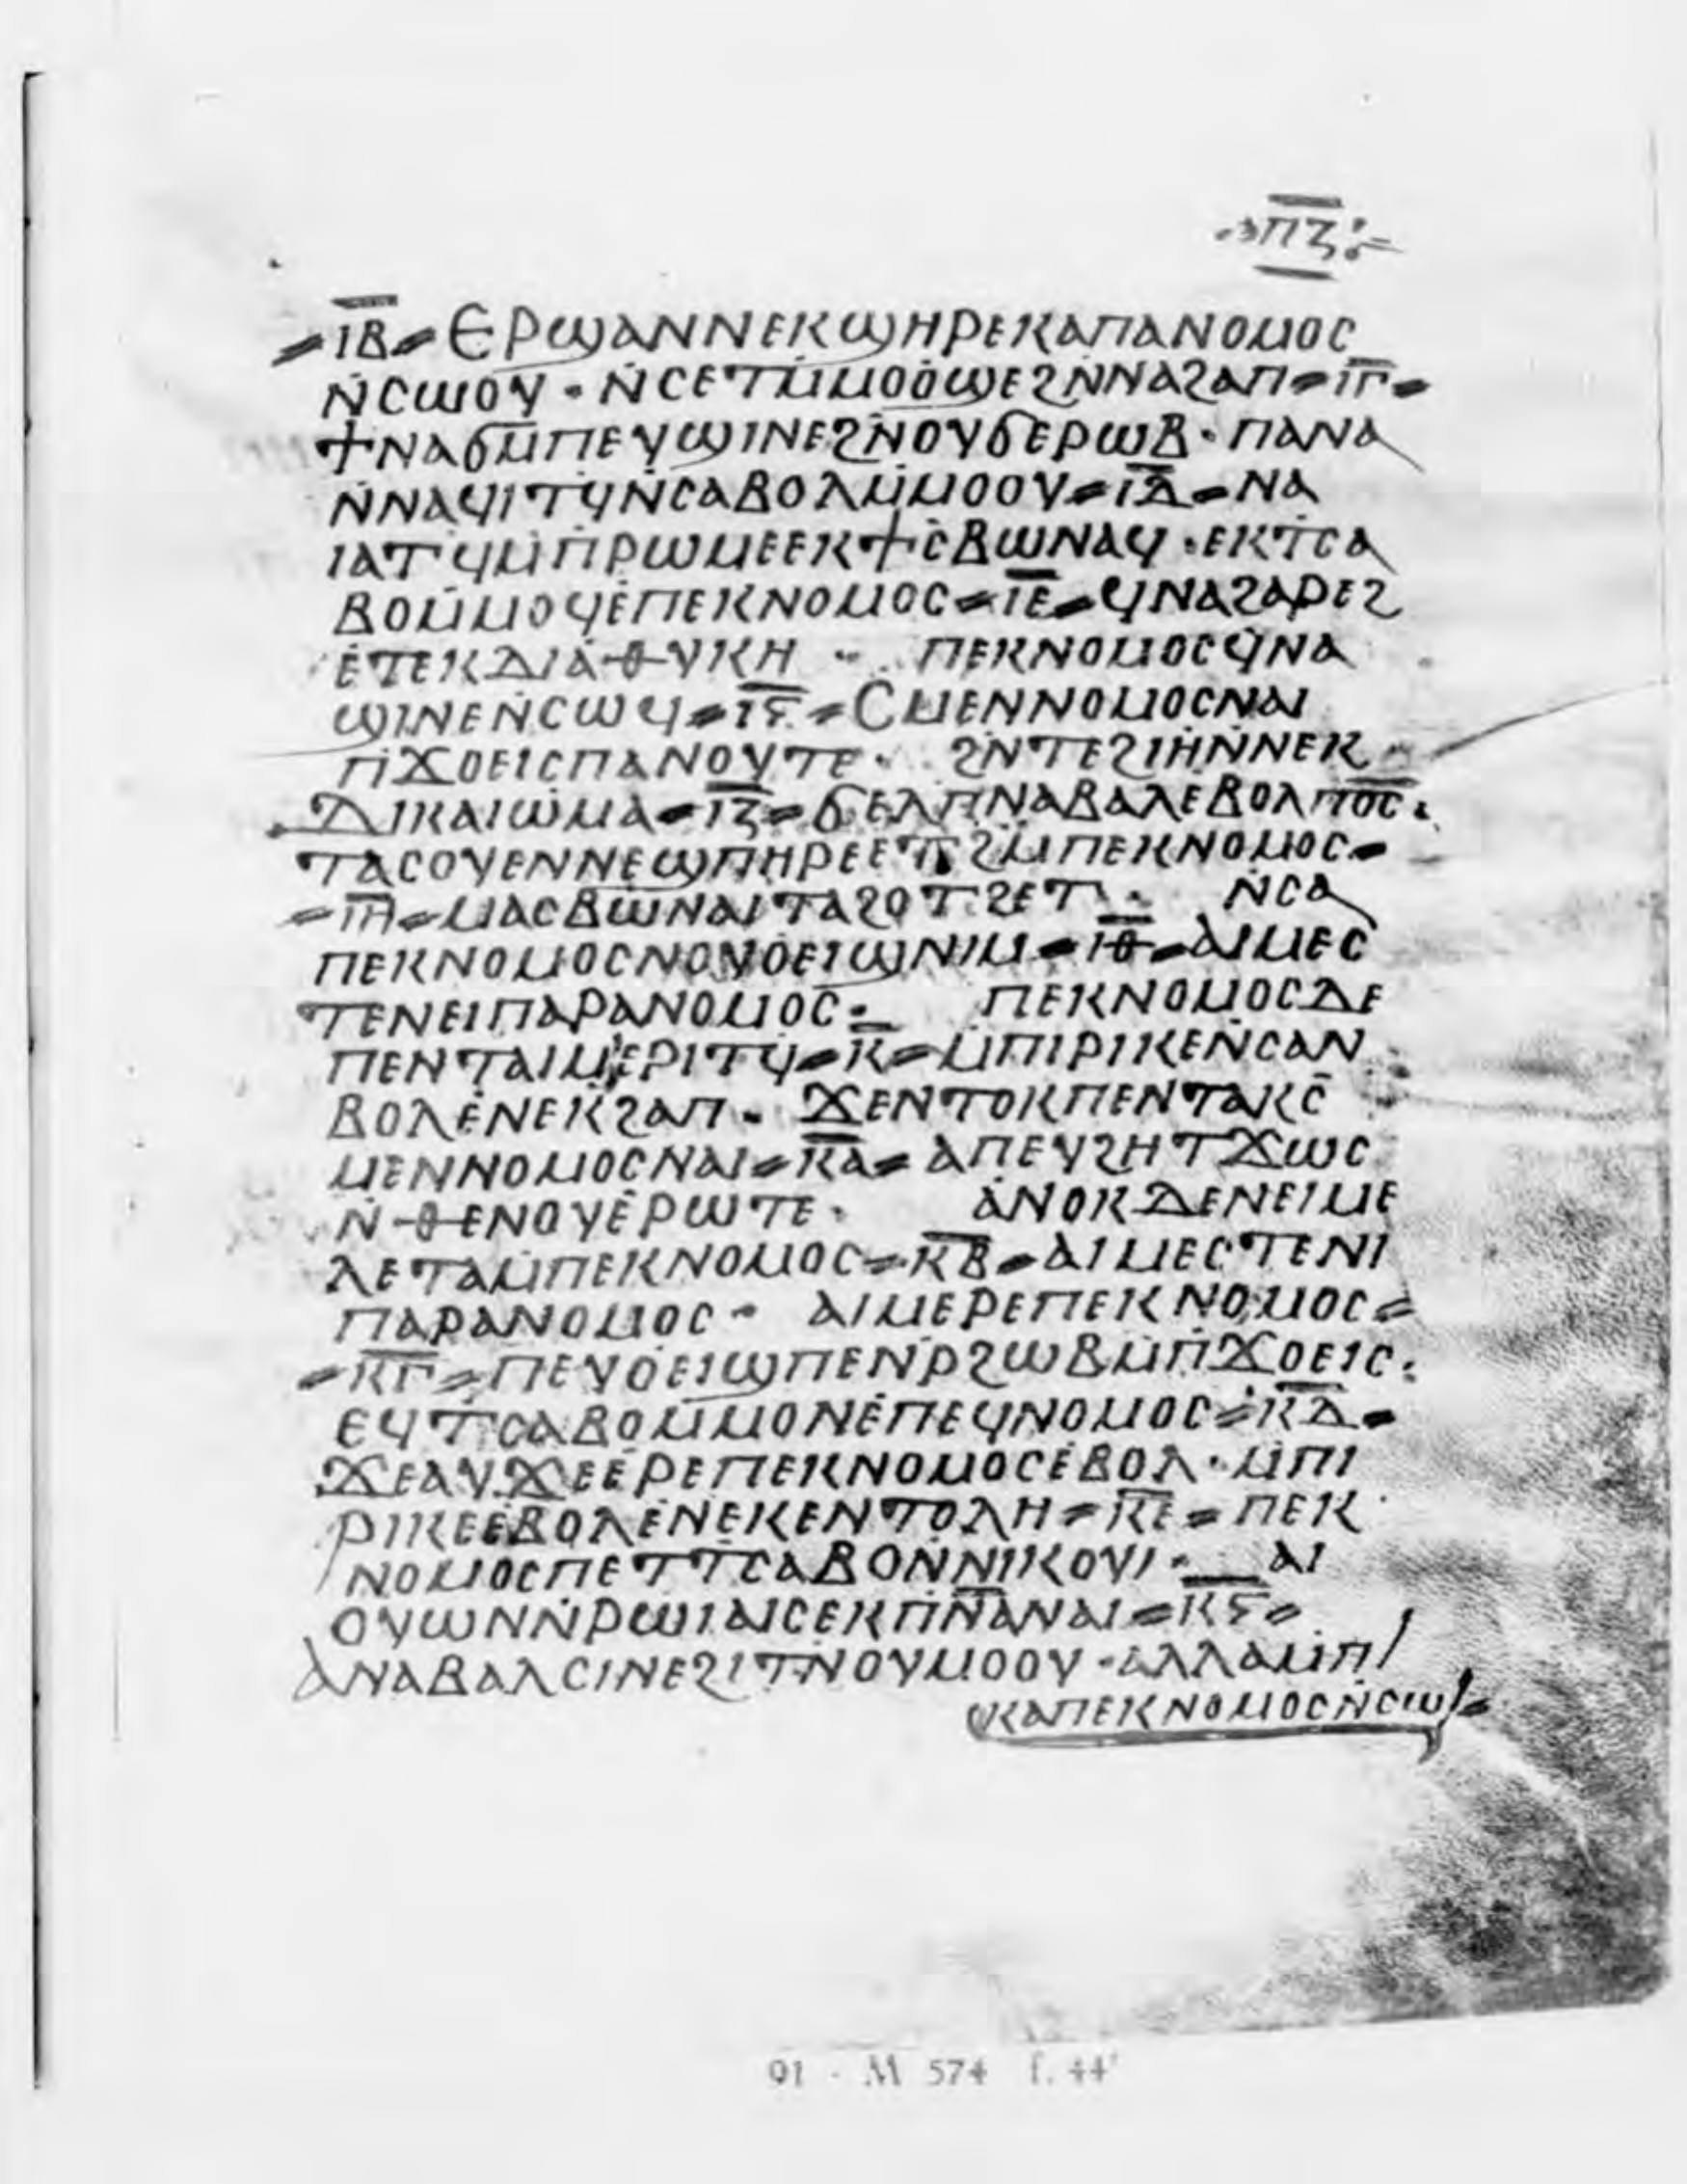 ⲡⲍ
ⲓ̅ⲃ̅ ⲉⲣϣⲁⲛⲛⲉⲕϣⲏⲣⲉⲕⲁⲡⲁⲛⲟⲙⲟⲥ
ⲛ̇ⲥⲱⲟⲩ · ⲛ̇ⲥⲉⲧⲙ̅ⲙⲟⲟϣⲉϩⲛ̅ⲛⲁϩⲁⲡ ⲓ̅ⲅ̅
ϯⲛⲁϭⲙ̅ⲡⲉⲩϣⲓⲛⲉϩⲛ̅ⲟⲩϭⲉⲣⲱⲃ · ⲡⲁⲛⲁ
ⲛ̇ⲛⲁϥⲓⲧϥⲛ̇ⲥⲁⲃⲟⲗⲙ̇ⲙⲟⲟⲩ ⲓ̅ⲇ̅ ⲛⲁ
ⲓⲁⲧϥⲙ̇ⲡ̇ⲣⲱⲙⲉⲉⲕϯⲥ̇ⲃⲱⲛⲁϥ · ⲉⲕⲧ̅ⲥⲁ
ⲃⲟⲙ̇ⲙⲟϥⲉ̇ⲡⲉⲕⲛⲟⲙⲟⲥ ⲓ̅ⲉ̅ ϥⲛⲁϩⲁⲣⲉϩ
ⲉ̇ⲧⲉⲕⲇⲓⲁⲑⲩⲕⲏ · ⲡⲉⲕⲛⲟⲙⲟⲥϥⲛⲁ
ϣⲓⲛⲉⲛ̇ⲥⲱϥ ⲓ̅ⲋ̅ ⲥⲙⲉⲛⲛⲟⲙⲟⲥⲛⲁⲓ
ⲡ̇ϫⲟⲉⲓⲥⲡⲁⲛⲟⲩⲧⲉ · ϩⲛ̇ⲧⲉϩⲓⲏⲛ̇ⲛⲉⲕ
ⲇⲓⲕⲁⲓⲱⲙⲁ ⲓ̅ⲍ̅ ϭⲉⲗⲡ̇ⲛⲁⲃⲁⲗⲉⲃⲟⲗⲡ̅ⲟ̅ⲥ̅ ·
ⲧⲁⲥⲟⲩⲉⲛⲛⲉϣⲡⲏⲣⲉⲉⲧ ϩⲙ̇ⲡⲉⲕⲛⲟⲙⲟⲥ
ⲓ̅ⲏ̅ ⲙⲁⲥⲃⲱⲛⲁⲓⲧⲁϩⲟⲧϩⲉⲧ · ⲛ̇ⲥⲁ
ⲡⲉⲕⲛⲟⲙⲟⲥⲛⲟⲩⲟⲉⲓϣⲛⲓⲙ ⲓ̅ⲑ̅ ⲁⲓⲙⲉⲥ
ⲧⲉⲛⲉⲓⲡⲁⲣⲁⲛⲟⲙⲟⲥ · ⲡⲉⲕⲛⲟⲙⲟⲥⲇⲉ
ⲡⲉⲛⲧⲁⲓⲙⲉⲣⲓⲧϥ ⲕ̅ ⲙ̇ⲡⲓⲣⲓⲕⲉⲛ̇ⲥⲁⲛ
ⲃⲟⲗⲉ̇ⲛⲉⲕϩⲁⲡ · ϫⲉⲛⲧⲟⲕⲡⲉⲛⲧⲁⲕⲥ̅
ⲙⲉⲛⲛⲟⲙⲟⲥⲛⲁⲓ ⲕ̅ⲁ̅ ⲁⲡⲉⲩϩⲏⲧϫⲱⲥ
ⲛ̇ⲑⲉⲛⲟⲩⲉ̇ⲣⲱⲧⲉ · ⲁ̇ⲛⲟⲕⲇⲉⲛⲉⲓⲙⲉ
ⲗⲉⲧⲁⲙ̇ⲡⲉⲕⲛⲟⲙⲟⲥ ⲕ̅ⲃ̅ ⲁⲓⲙⲉⲥⲧⲉⲛⲓ
ⲡⲁⲣⲁⲛⲟⲙⲟⲥ · ⲁⲓⲙⲉⲣⲉⲡⲉⲕⲛⲟⲙⲟⲥ
ⲕ̅ⲅ̅ ⲡⲉⲩⲟⲉⲓϣⲡⲉⲛⲣ̇ϩⲱⲃⲙ̇ⲡ̇ϫⲟⲉⲓⲥ ·
ⲉϥⲧ̅ⲥⲁⲃⲟⲙ̇ⲙⲟⲛⲉ̇ⲡⲉϥⲛⲟⲙⲟⲥ ⲕ̅ⲇ̅
ϫⲉⲁⲩϫⲉⲉ̇ⲣⲉⲡⲉⲕⲛⲟⲙⲟⲥⲉ̇ⲃⲟⲗ · ⲙ̇ⲡⲓ
ⲣⲓⲕⲉⲉ̇ⲃⲟⲗⲉ̇ⲛⲉⲕⲉⲛⲧⲟⲗⲏ ⲕ̅ⲉ̅ ⲡⲉⲕ
ⲛⲟⲙⲟⲥⲡⲉⲧⲧ̅ⲥⲁⲃⲟⲛ̇ⲛⲓⲕⲟⲩⲓ · ⲁⲓ
ⲟⲩⲱⲛⲛ̇ⲣⲱⲓⲁⲓⲥⲉⲕⲡ̇ⲛ̅ⲁ̅ⲛⲁⲓ ⲕ̅ⲋ̅
ⲁⲛⲁⲃⲁⲗⲥⲓⲛⲉϩⲓⲧⲛ̇ⲟⲩⲙⲟⲟⲩ · ⲁⲗⲗⲁⲙ̇ⲡⲓ
ⲕⲁⲡⲉⲕⲛⲟⲙⲟⲥⲛ̇ⲥⲱⲓ
91 · M 574 f. 44ʳ